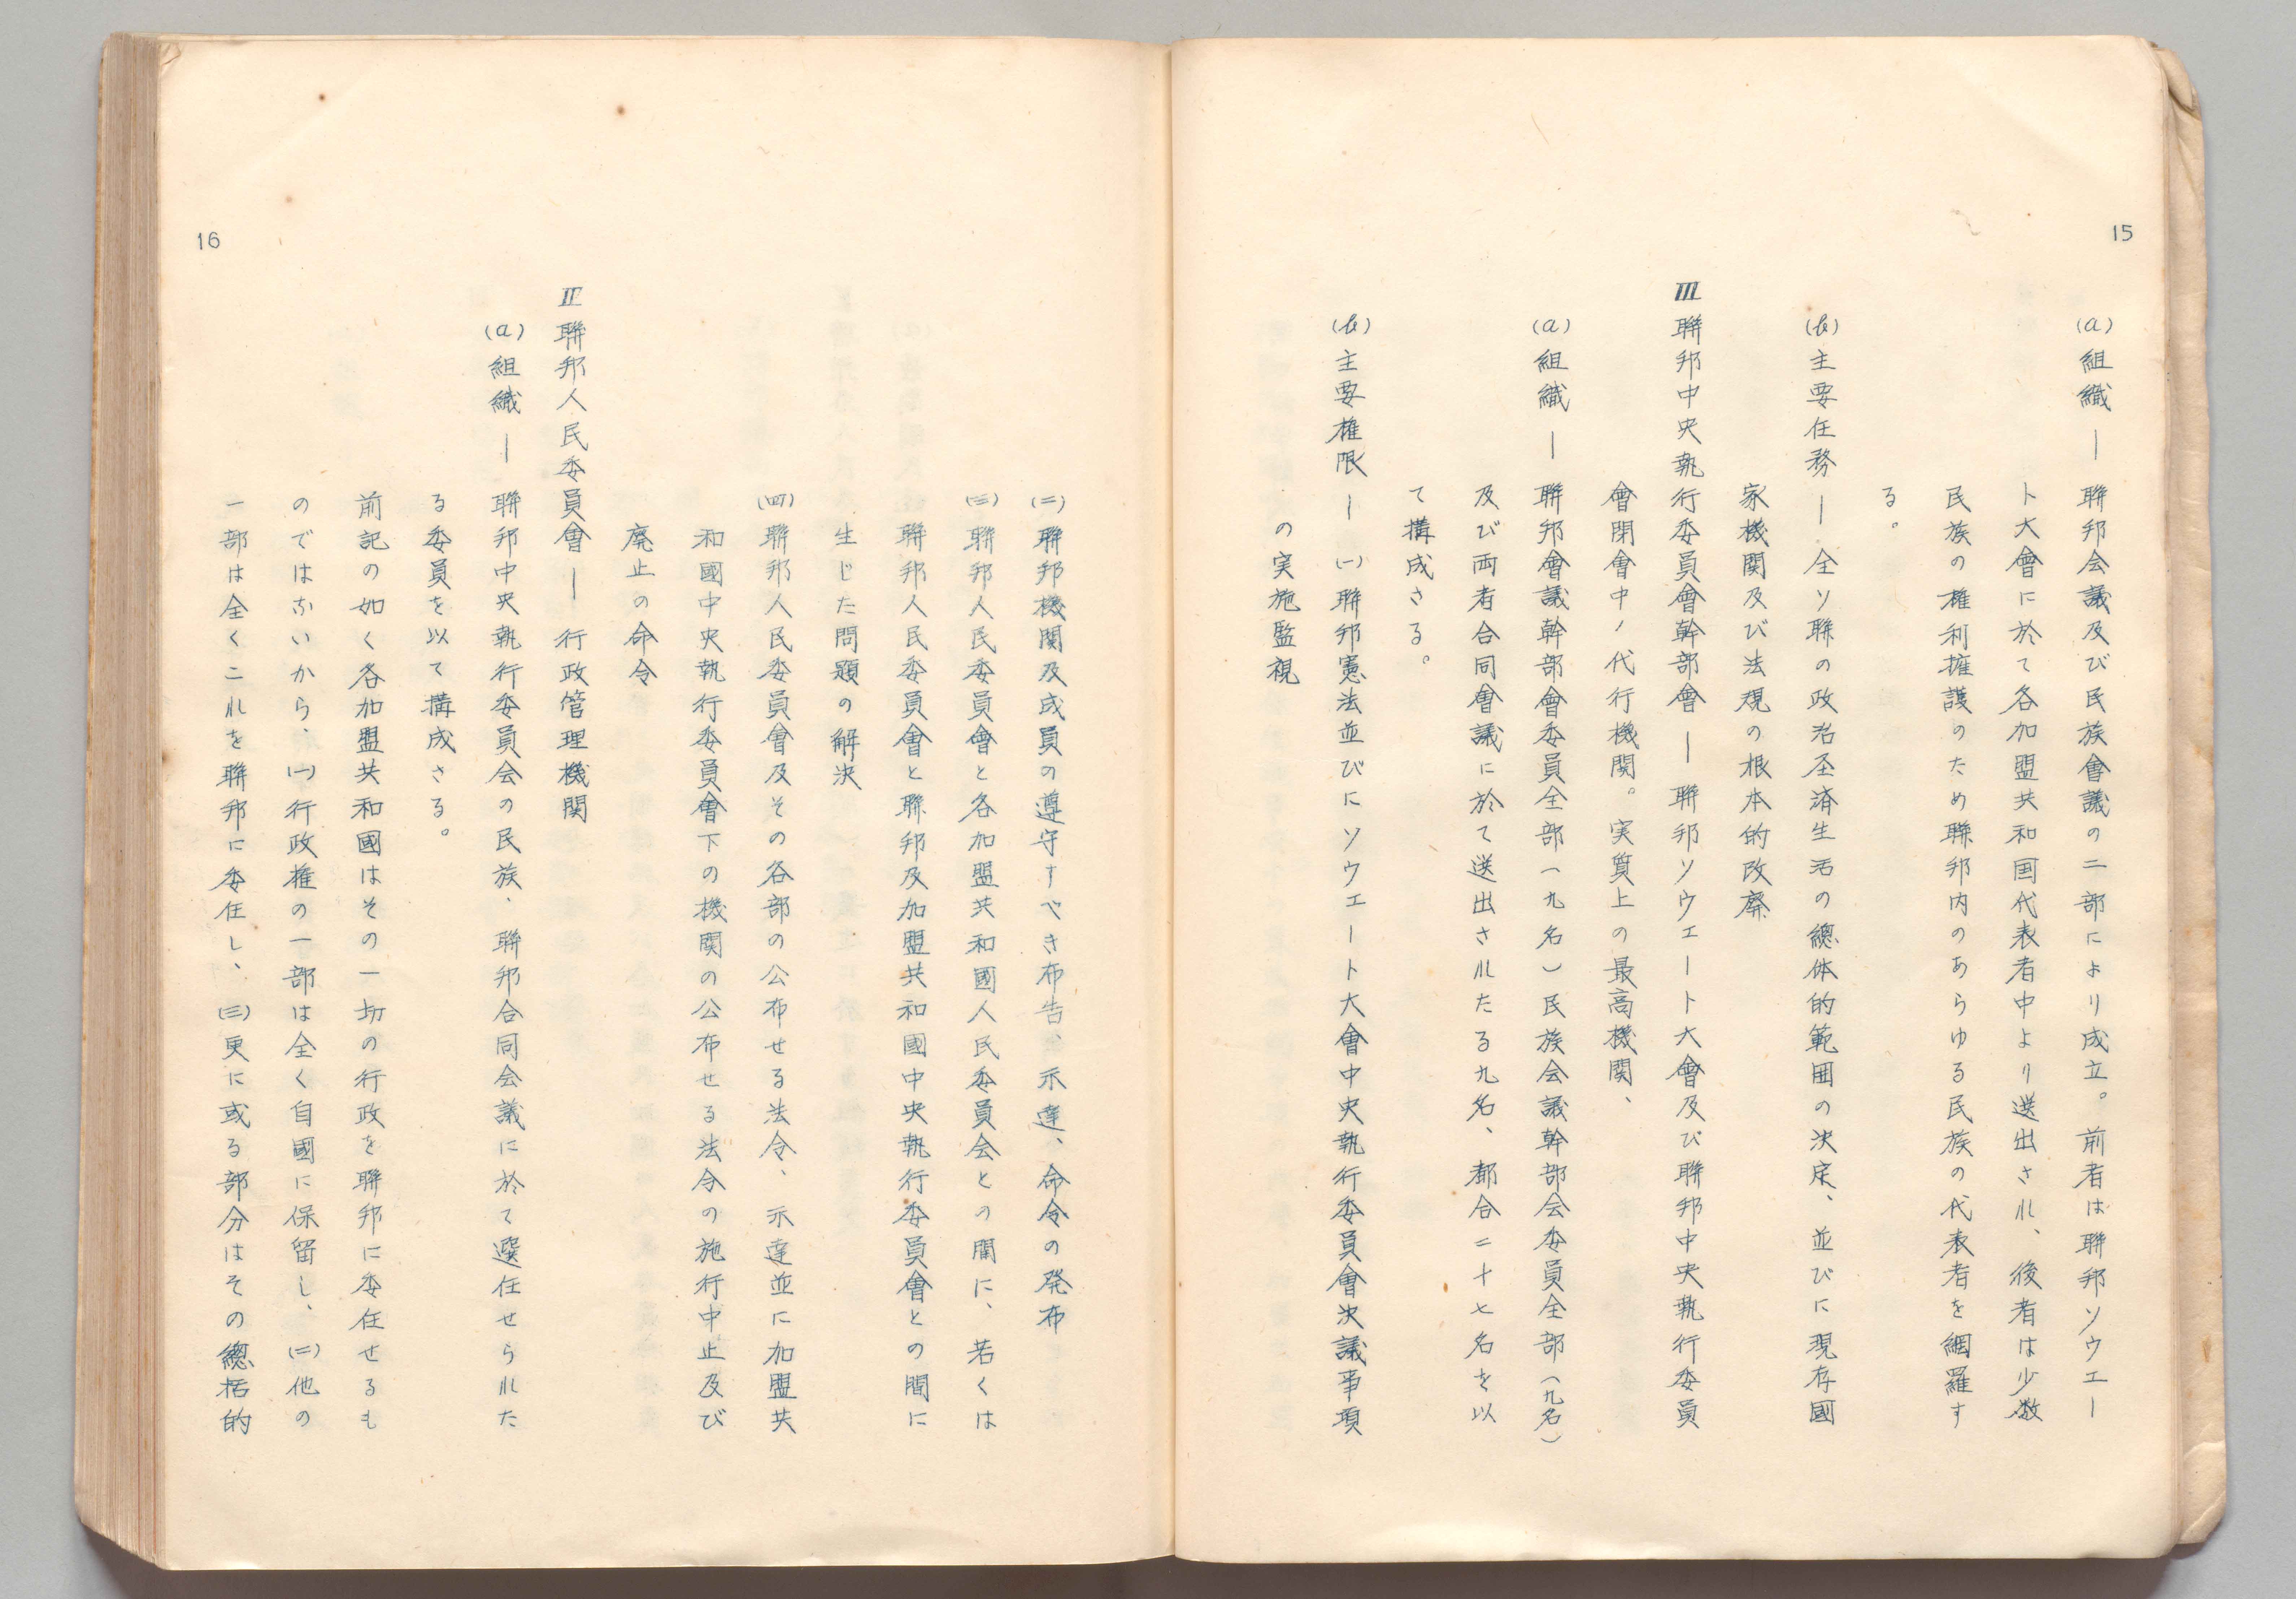 15
(a)組織―聯邦会議及び民族會議の二部により成立。前者は聯邦ソウエー
ト大會に於て各加盟共和国代表者中より送出され、後者は少数
民族の権利擁護のため聯邦内のあらゆる民族の代表者を網羅す
る。
(b)主要任務―全ソ聯の政治圣済生活の總体的範囲の決定、並びに現存國
家機関及び法規の根本的改廃
III聯邦中央執行委員會幹部會―聯邦ソウエート大會及び聯邦中央執行委員
會閉會中ノ代行機関。実質上の最高機関、
(a)組織―聯邦會議幹部會委員全部(九名)民族会議幹部会委員全部(九名)
及び両者合同會議に於て送出されたる九名、都合二十七名を以
て構成さる。
(b)主要権限―(一)聯邦憲法並びにソウエート大會中央執行委員會決議事項
の実施監視
(二)聯邦機関及成員の遵守すべき布告、示達、命令の発布
(三)聯邦人民委員會と各加盟共和國人民委員会との間に、若くは
聯邦人民委員會と聯邦及加盟共和國中央執行委員會との間に
生じた問題の解決
(四)聯邦人民委員會及その各部の公布せる法令、示達並に加盟共
和國中央執行委員會下の機関の公布せる法令の施行中止及び
廃止の命令
IV聯邦人民委員會―行政管理機関
(a)組織―聯邦中央執行委員会の民族、聯邦合同会議に於て選任せられた
る委員を以て構成さる。
前記の如く各加盟共和國はその一切の行政を聯邦に委任せるも
のではないから、(一)行政権の一部は全く自國に保留し、(二)他の
一部は全くこれを聯邦に委任し、(三)更に或る部分はその總括的
16